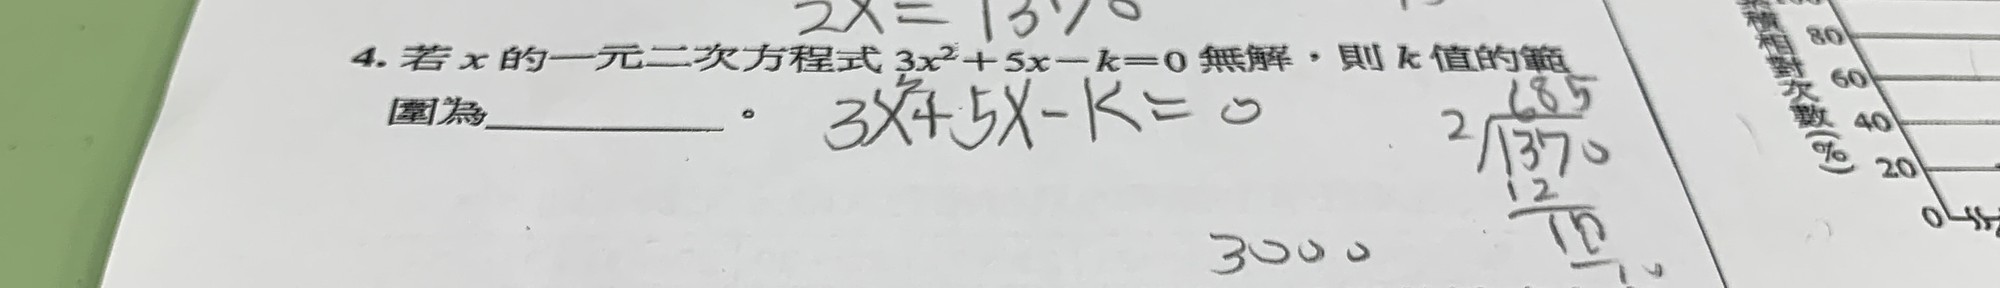 2x=1370
4. 若 x 的一元二次方程式 3x²+5x-k=0 無解,則 k 值的範
圍為__________。
3x²+5x-k=0
685
2 1370
12
17
3000
積相對次數(%)
80
60
40
20
0